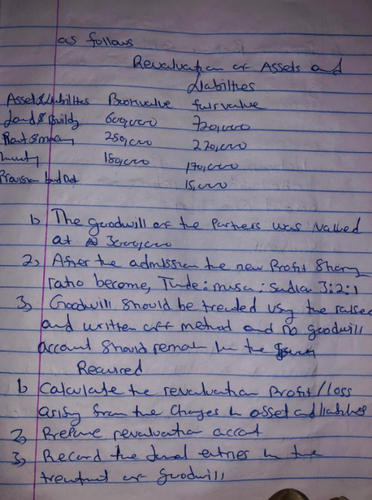 as follows
Revaluation of Assets and
Liabilities
Assets & Liabilities Book value fair value
Land & Buildg 600,000 720,000
Plant & 250,000 220,000
180,000 170,000
Provision 15,000
1) The goodwill of the Partners was valued
at N 300,000
2) After the admission the new Profit Sharing
ratio become, Tunde: musa: Sadia 3:2:1
3) Goodwill should be treated using the raised
and written off method and no goodwill
account should remain in the
Required
1) Calculate the revaluation Profit/loss
arising from the changes in asset and liabilities
2) Prepare revaluation account
3) Record the entries in the
treatment of goodwill